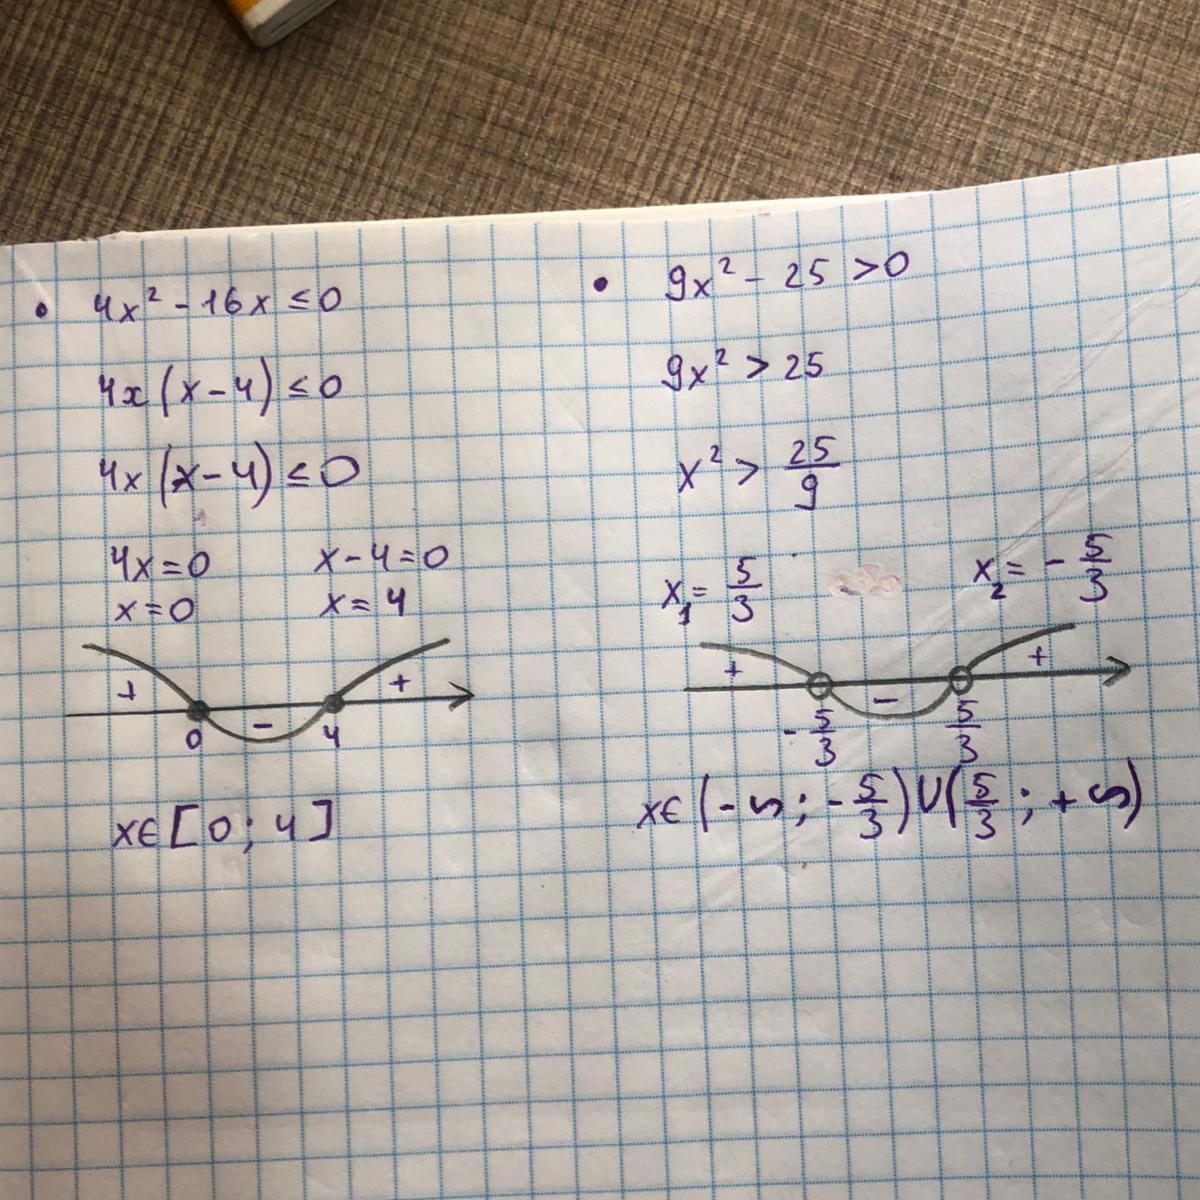 • 4x² - 16x ≤ 0
4x(x-4) ≤ 0
4x(x-4) ≤ 0
4x=0 x-4=0
x=0 x=4
+ - +
0 4
x∈[0; 4]
• 9x² - 25 > 0
9x² > 25
x² > 25/9
x₁= 5/3 x₂= - 5/3
+ - +
-5/3 5/3
x∈(-∞; -5/3)∪(5/3; +∞)